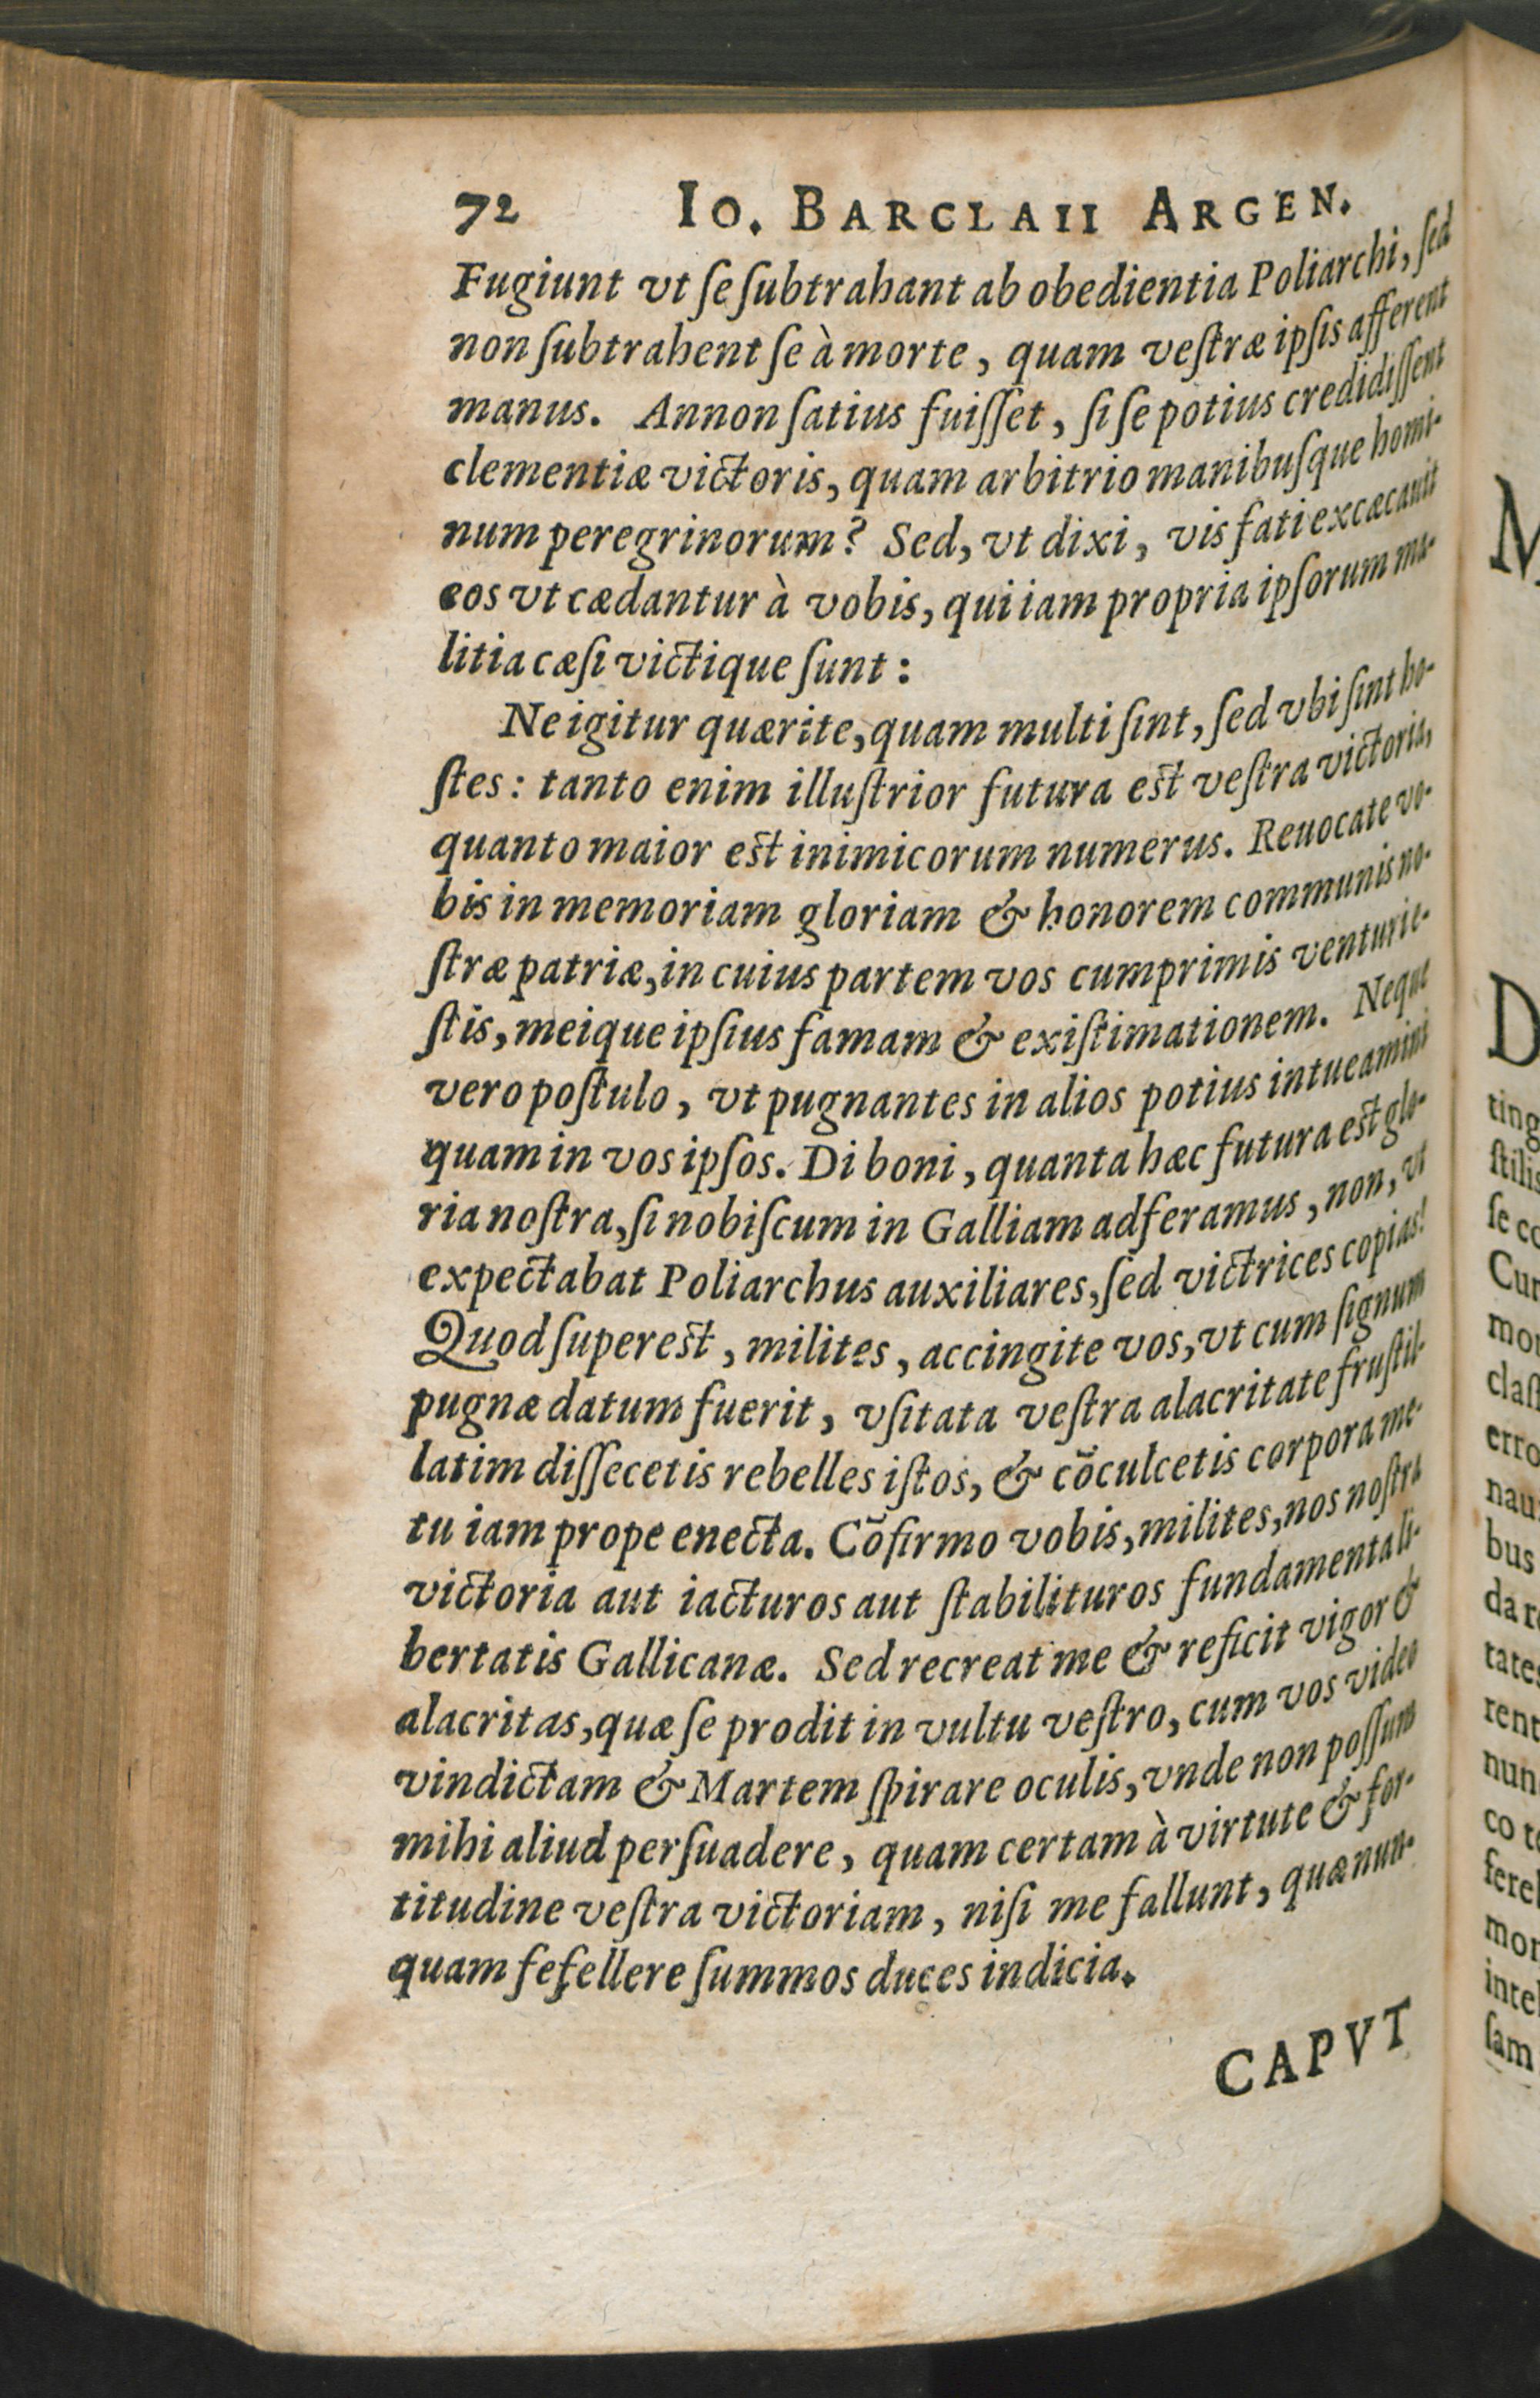 72 Io. BARCLAII ARGEN.
Fugiunt vt ſe ſubtrahant ab obedientia Poliarchi, ſed
non ſubtrahent ſe à morte, quam veſtræ ipſis afferent
manus. Annon ſatius fuiſſet, ſi ſe potius credidiſſent
clementiæ victoris, quam arbitrio manibuſque homi-
num peregrinorum? Sed, vt dixi, vis fati excæcauit
eos vt cædantur à vobis, qui iam propria ipſorum ma-
litia cæſi victique ſunt:
Ne igitur quærite, quam multi ſint, ſed vbi ſint ho-
ſtes: tanto enim illuſtrior futura eſt veſtra victoria,
quanto maior eſt inimicorum numerus. Reuocate vo-
bis in memoriam gloriam & honorem communis no-
ſtræ patriæ, in cuius partem vos cumprimis venturi e-
ſtis, meique ipſius famam & exiſtimationem. Neque
vero poſtulo, vt pugnantes in alios potius intueamini
quam in vos ipſos. Di boni, quanta hæc futura eſt glo-
ria noſtra, ſi nobiſcum in Galliam adferamus, non, vt
expectabat Poliarchus auxiliares, ſed victrices copias!
Quod ſupereſt, milites, accingite vos, vt cum ſignum
pugnæ datum fuerit, vſitata veſtra alacritate fruſtil-
latim diſſecetis rebelles iſtos, & cōculcetis corpora me-
tu iam prope enecta. Cōfirmo vobis, milites, nos noſtra
victoria aut iacturos aut ſtabilituros fundamenta li-
bertatis Gallicanæ. Sed recreat me & reficit vigor &
alacritas, quæ ſe prodit in vultu veſtro, cum vos video
vindictam & Martem ſpirare oculis, vnde non poſſum
mihi aliud perſuadere, quam certam à virtute & for-
titudine veſtra victoriam, niſi me fallunt, quæ nun-
quam fefellere ſummos duces indicia.
CAPVT
M
D
ting
ſtilis
ſe co
Cur
mo
claſ
erro
nau
bus
da r
tates
rent
nun
co t
fere
mor
inte
ſam